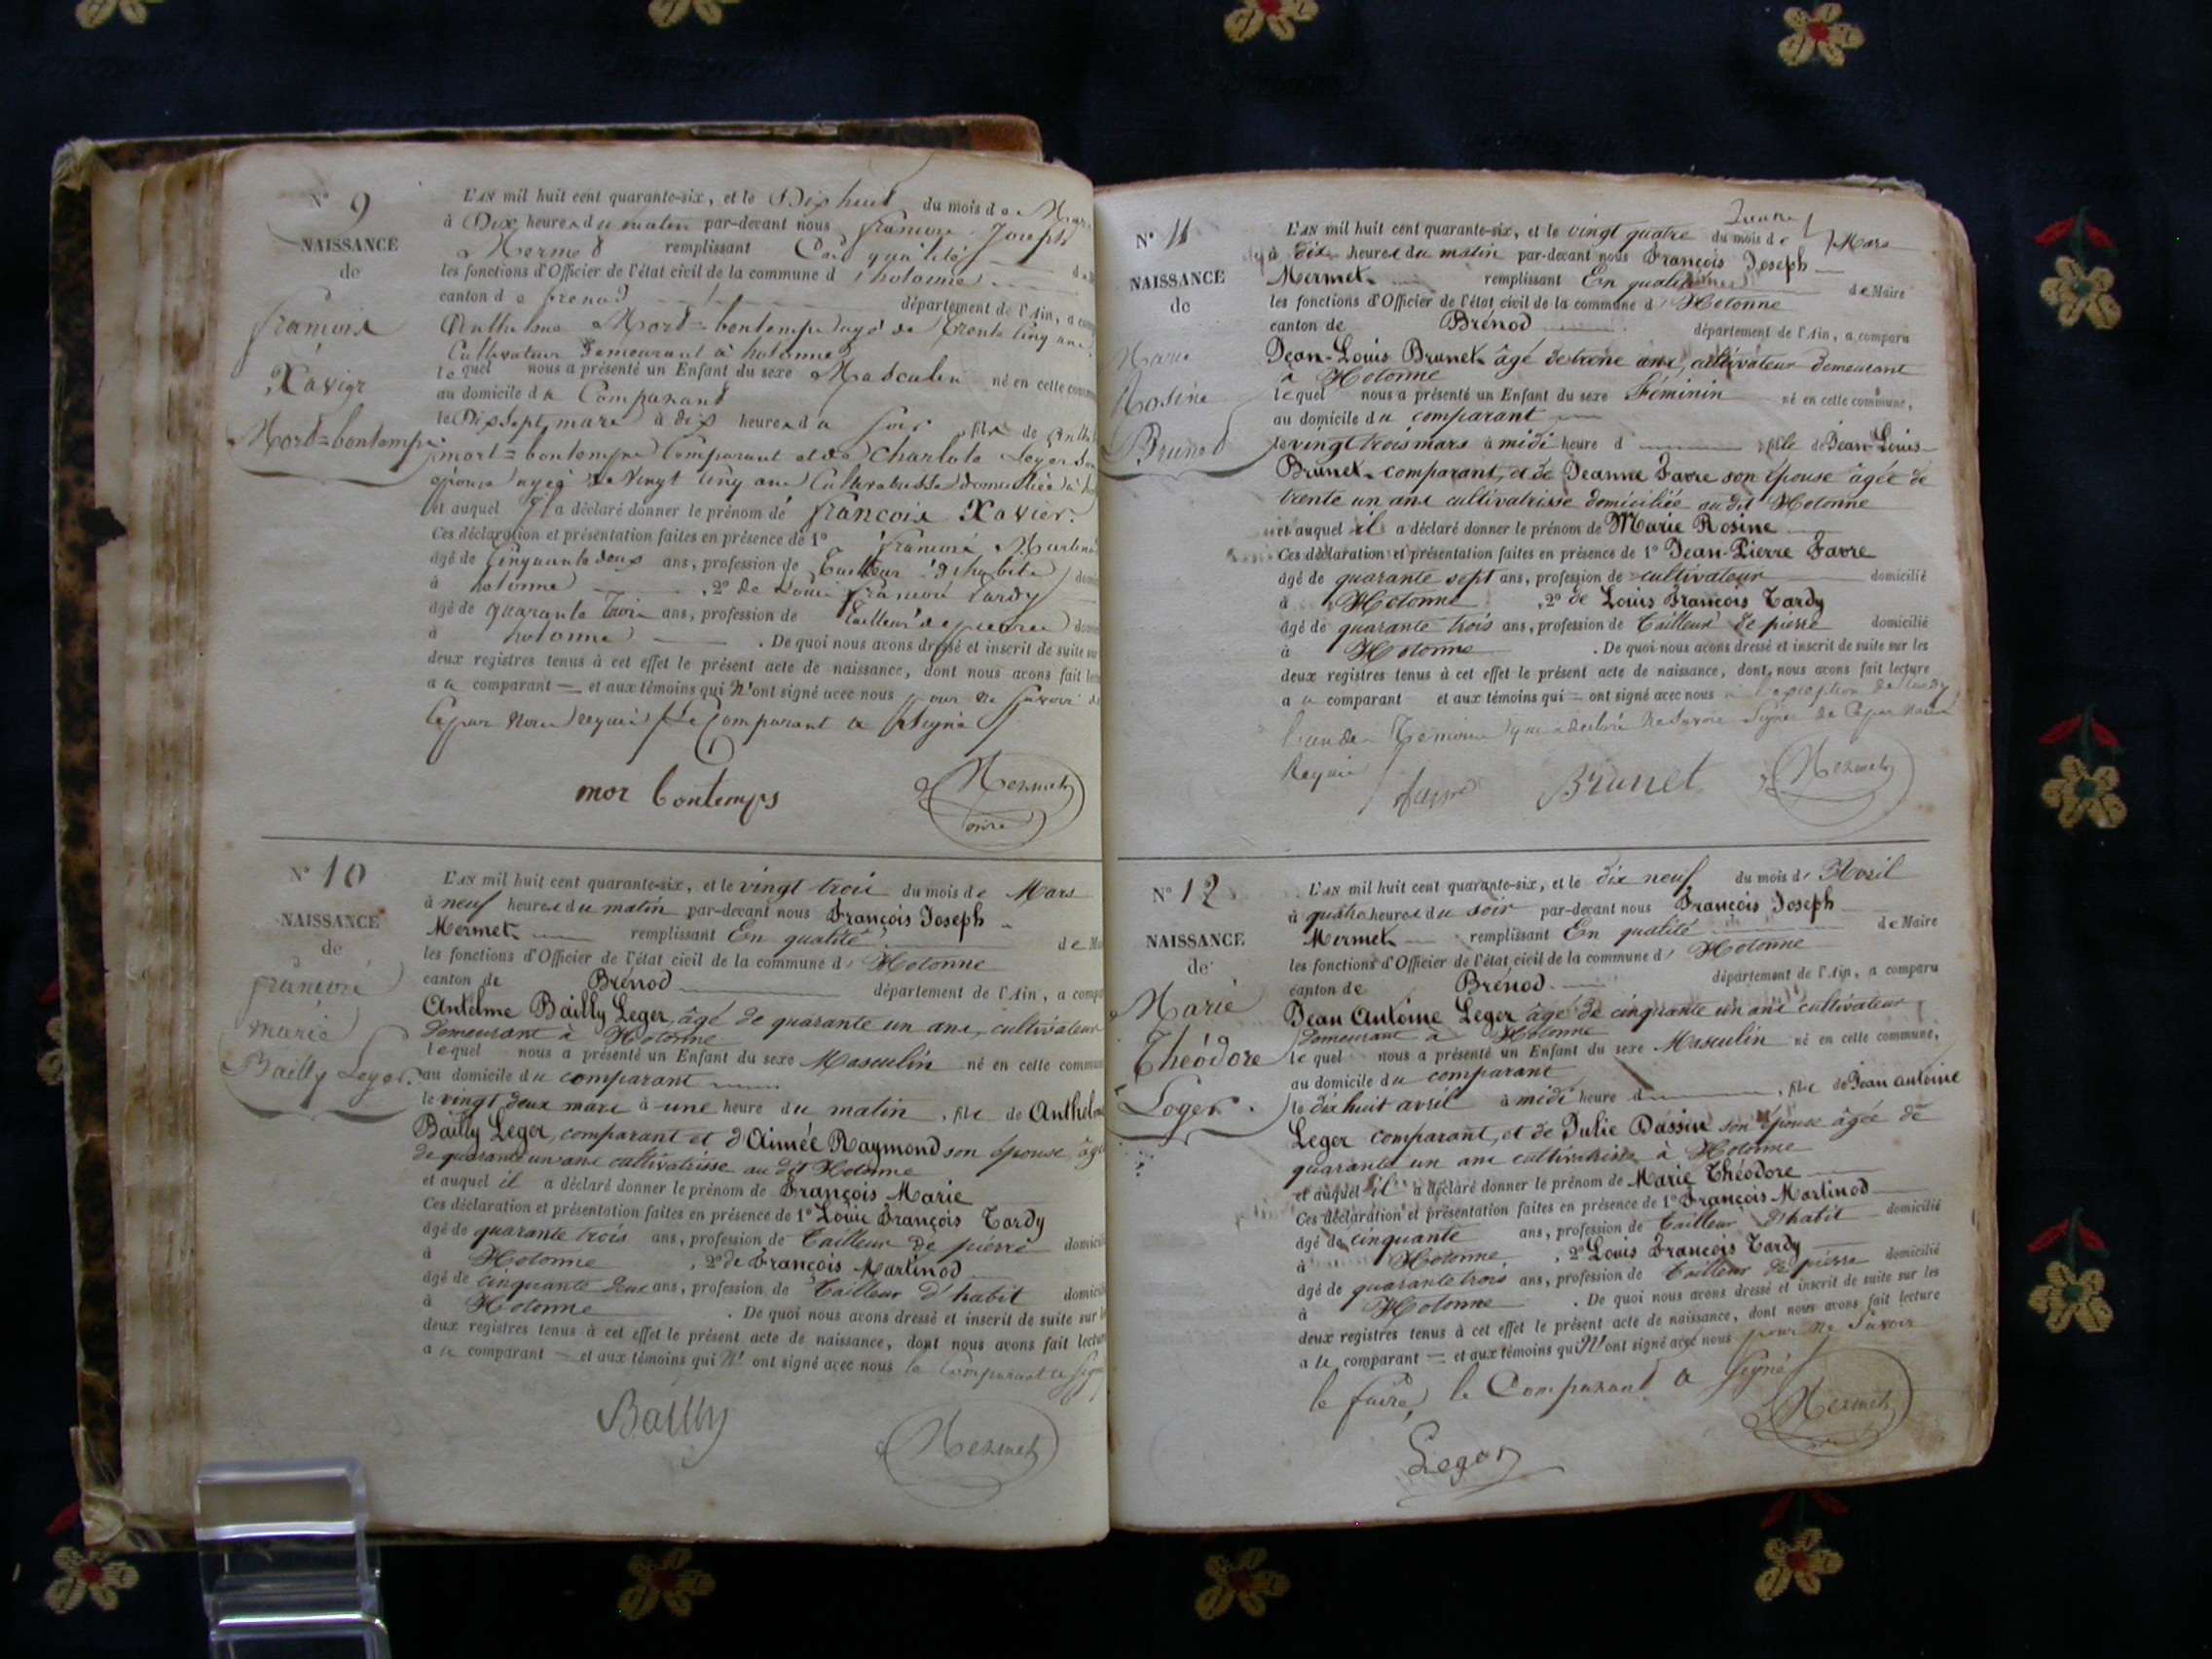 N° 9
NAISSANCE
de
françois
Xavier
Mort=bontemps
L'AN mil huit cent quarante-six, et le Dix huit du mois de Mars
à Dix heures du matin par-devant nous françois Joseph
Mermet remplissant En qualité
les fonctions d'Officier de l'état civil de la commune d' hotonne
canton de brenod département de l'Ain, a
Anthelme Mort=bontemps agé de trente cinq ans
Cultivateur Demeurant à hotonne
lequel nous a présenté un Enfant du sexe Masculin né en cette
au domicile du Comparant
le Dix sept mars à dix heures du soir fils de
mort=bontemps Comparant et de Charlote Leger son
épouse agée de vingt cinq ans Cultivatrisse domiciliée à
et auquel Il a déclaré donner le prénom de françois Xavier.
Ces déclaration et présentation faites en présence de 1° françois Martinod
âgé de Cinquante deux ans, profession de Tailleur d'habits
à hotonne , 2° de Louis françois Tardy
âgé de quarante trois ans, profession de tailleur de pierre
à hotonne . De quoi nous avons dressé et inscrit de suite sur
deux registres tenus à cet effet le présent acte de naissance, dont nous avons fait
a u comparant — et aux témoins qui N'ont signé avec nous pour ne savoir de
Ce par Nous requis Le Comparant a Signé
mor bontemps
Mermet
N° 10
NAISSANCE
de
françois
marie
Bailly Leger.
L'AN mil huit cent quarante-six, et le vingt trois du mois de Mars
à neuf heures du matin par-devant nous François Joseph
Mermet remplissant En qualité de
les fonctions d'Officier de l'état civil de la commune d' Hotonne
canton de Brénod département de l'Ain, a
Antelme Bailly Leger, âgé de quarante un ans, cultivateur
demeurant à Hotonne
lequel nous a présenté un Enfant du sexe Masculin né en cette
au domicile du comparant
le vingt deux mars à une heure du matin, fils de
Bailly Leger, comparant et d'Aimée Raymond son épouse
de quarante un ans cultivatrisse au dit Hotonne
et auquel il a déclaré donner le prénom de François Marie
Ces déclaration et présentation faites en présence de 1° Louis François Tardy
âgé de quarante trois ans, profession de Tailleur de pierre
à Hotonne , 2° de François Martinod
âgé de cinquante deux ans, profession de Tailleur d'habit
à Hotonne . De quoi nous avons dressé et inscrit de suite sur
deux registres tenus à cet effet le présent acte de naissance, dont nous avons fait
a u comparant — et aux témoins qui N' ont signé avec nous le Comparant a
Bailly
Mermet
N° 11
NAISSANCE
de
Marie
Rosine
Brunet
L'AN mil huit cent quarante-six, et le vingt quatre du mois de Mars
à dix heures du matin par-devant nous François Joseph
Mermet remplissant En qualité de Maire
les fonctions d'Officier de l'état civil de la commune d' Hotonne
canton de Brénod département de l'Ain, a comparu
Jean-Louis Brunet âgé de trente ans, cultivateur demeurant
à Hotonne
lequel nous a présenté un Enfant du sexe Féminin né en cette commune,
au domicile du comparant
le vingt trois mars à midi heure d fille de Jean-Louis
Brunet comparant, et de Jeanne Favre son épouse âgée de
trente un ans cultivatrisse domiciliée au dit Hotonne
et auquel il a déclaré donner le prénom de Marie Rosine
Ces déclaration et présentation faites en présence de 1° Jean-Pierre Favre
âgé de quarante sept ans, profession de cultivateur domicilié
à Hotonne , 2° de Louis François Tardy
âgé de quarante trois ans, profession de Tailleur de pierre domicilié
à Hotonne . De quoi nous avons dressé et inscrit de suite sur les
deux registres tenus à cet effet le présent acte de naissance, dont nous avons fait lecture
a u comparant et aux témoins qui — ont signé avec nous à l'exception de tardy
l'un des Témoins qui a declaré ne savoir Signer de Ce par Nous
Requis
favre
Brunet
Mermet
N° 12
NAISSANCE
de
Marie
Théodore
Leger.
L'AN mil huit cent quarante-six, et le dix neuf du mois d' Avril
à quatre heures du soir par-devant nous François Joseph
Mermet remplissant En qualité de Maire
les fonctions d'Officier de l'état civil de la commune d' Hotonne
canton de Brénod département de l'Ain, a comparu
Jean Antoine Leger âgé de cinquante un ans cultivateur
demeurant à Hotonne
lequel nous a présenté un Enfant du sexe Masculin né en cette commune,
au domicile du comparant
le dix huit avril à midi heure d , fils de Jean antoine
Leger comparant, et de Julie Dassin son épouse âgée de
quarante un ans cultivatrisse à Hotonne
et auquel il a déclaré donner le prénom de Marie Théodore
Ces déclaration et présentation faites en présence de 1° François Martinod
âgé de cinquante ans, profession de Tailleur d'habit domicilié
à Hotonne , 2° Louis François Tardy
âgé de quarante trois ans, profession de Tailleur de pierre domicilié
à Hotonne . De quoi nous avons dressé et inscrit de suite sur les
deux registres tenus à cet effet le présent acte de naissance, dont nous avons fait lecture
a u comparant — et aux témoins qui N'ont signé avec nous pour ne Savoir
le faire, le Comparant a Signé
Leger
Mermet